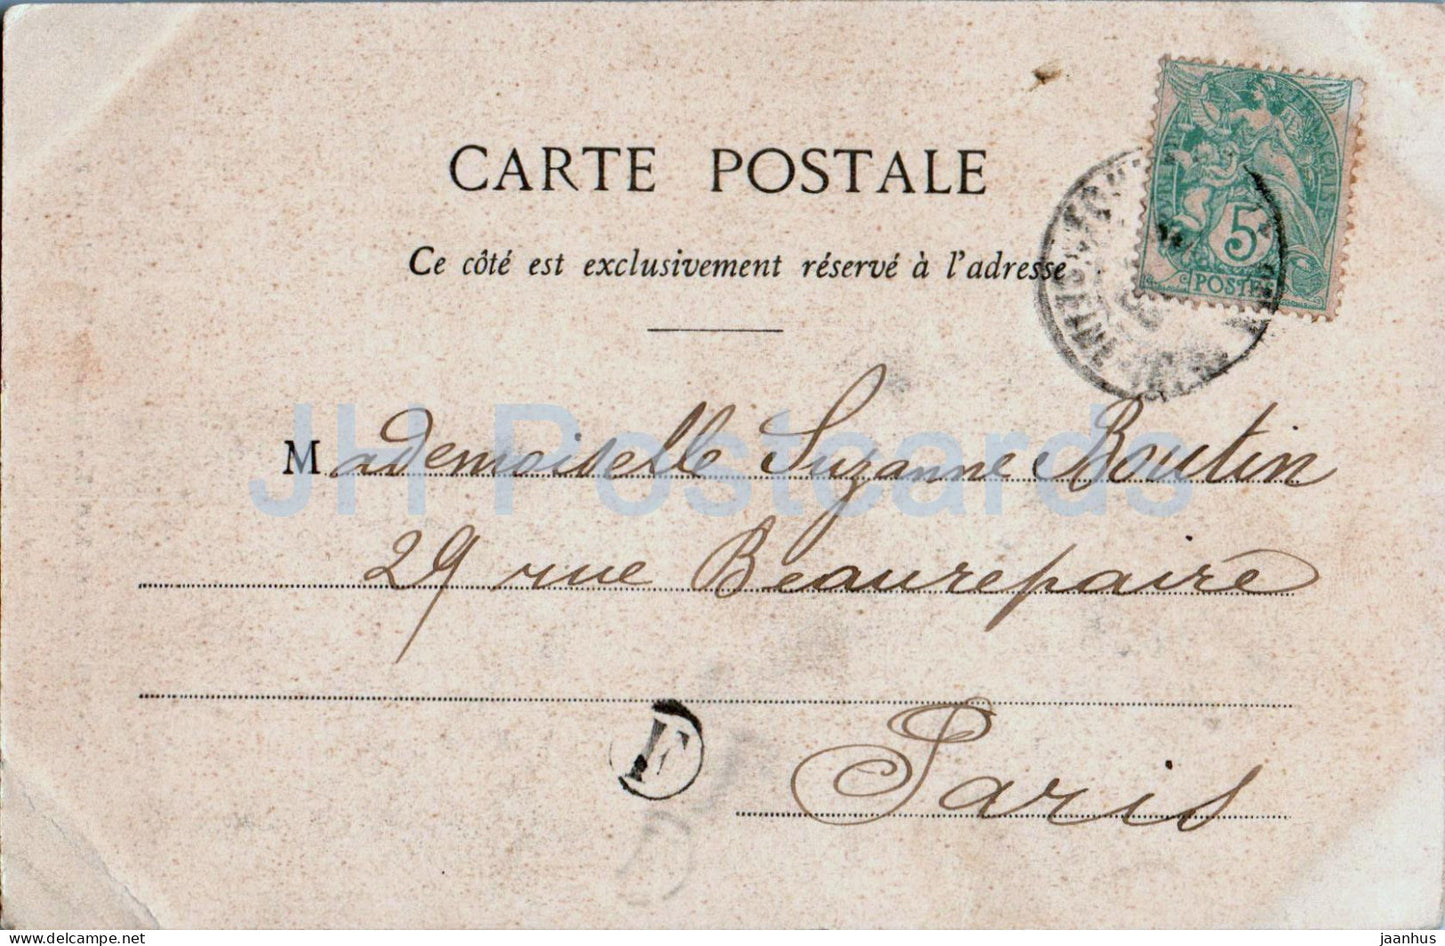 CARTE POSTALE
Ce côté est exclusivement réservé à l'adresse
5
POSTES
Mademoiselle Suzanne Boutin
29 rue Beaurepaire
Paris
F
JH Postcards
jaanhus | delcampe.net